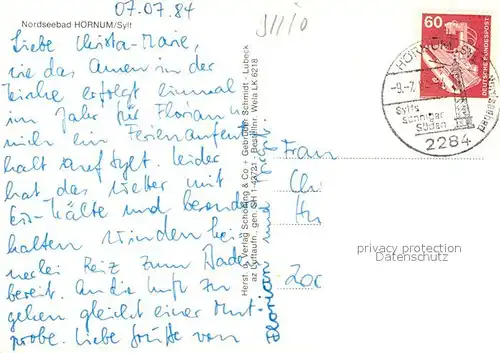 07.07.84
Nordseebad HÖRNUM/Sylt
Liebe Christa-Marie,
wie das Amen in der
Kirche erfolgt einmal
im Jahr für Florian u.
mich ein Ferienaufent
halt auf Sylt. Leider
hat das Wetter mit
Eis-Kälte und
haltenden Winden kei-
nerlei Reiz zum Baden
bereit. An die Luft zu
gehen gleicht einer Mut-
probe. Liebe Grüße von
Florian und
Herst. u. Verlag Schöning & Co + Gebrüder Schmidt - Lübeck
az Luftaufn., gen. SH 1-42/21 Bestellnr. Wela LK 6218
60
DEUTSCHE BUNDESPOST
HÖRNUM
-9.-7.
Sylts
Sonniger
Süden
2284
Frau
privacy protection
www.ansichtskartenversand.com